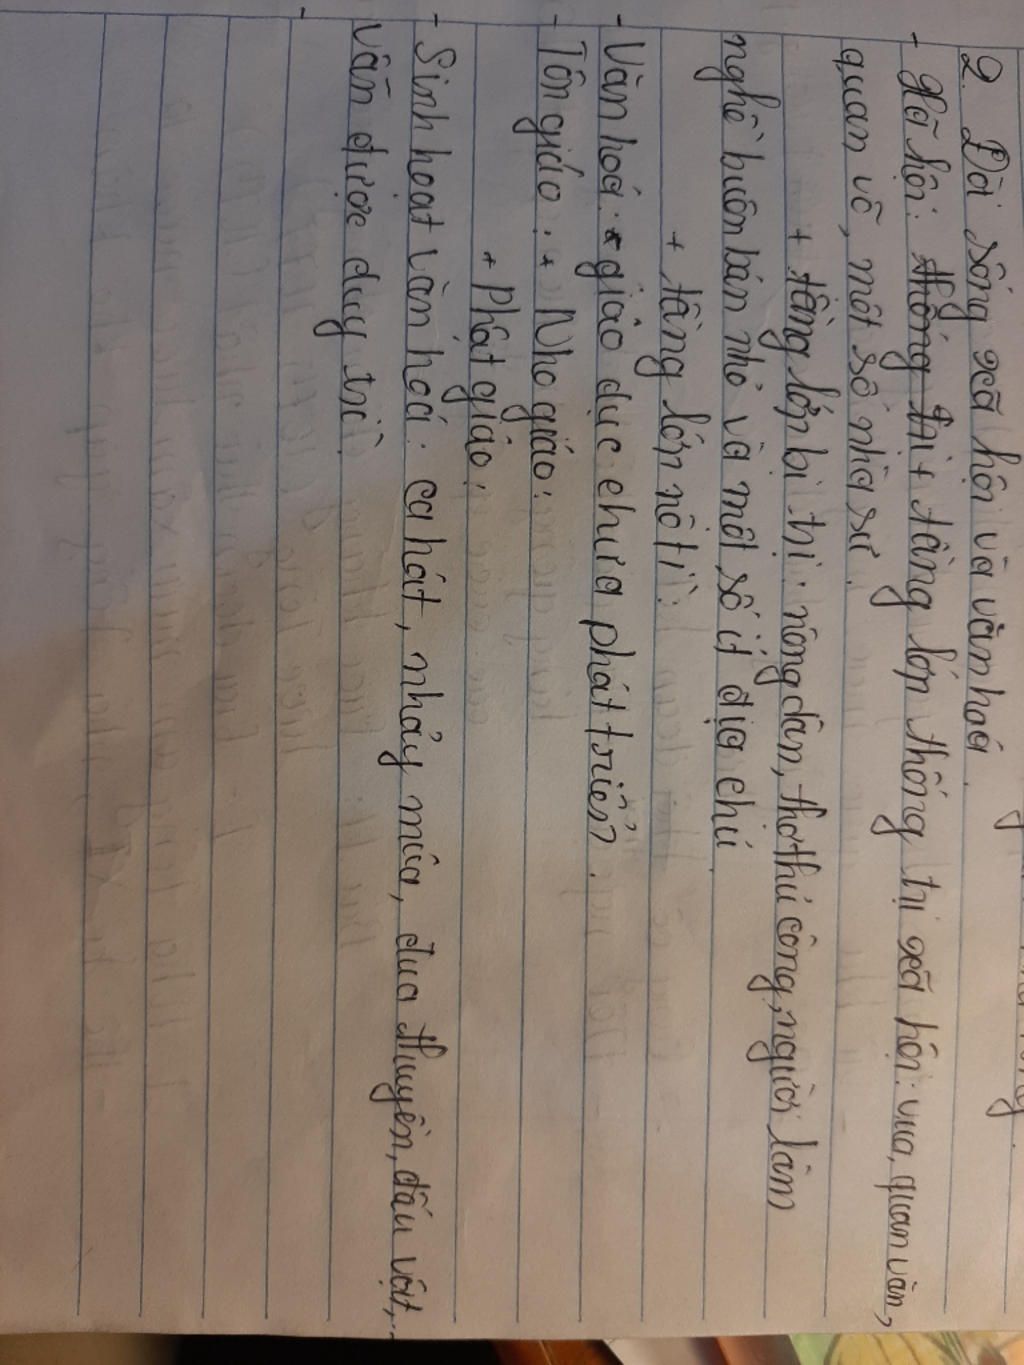 2. Đời sống xã hội và văn hoá.
- Xã hội: thống trị + tầng lớp thống trị xã hội: vua, quan văn,
quan võ, một số nhà sư.
+ tầng lớp bị trị: nông dân, thợ thủ công, người làm
nghề buôn bán nhỏ và một số ít địa chủ
+ tầng lớp nô tì.
- Văn hoá: + giáo dục chưa phát triển.
- Tôn giáo: + Nho giáo:
+ Phật giáo:
- Sinh hoạt văn hoá: ca hát, nhảy múa, đua thuyền, đấu vật,...
vẫn được duy trì.
-